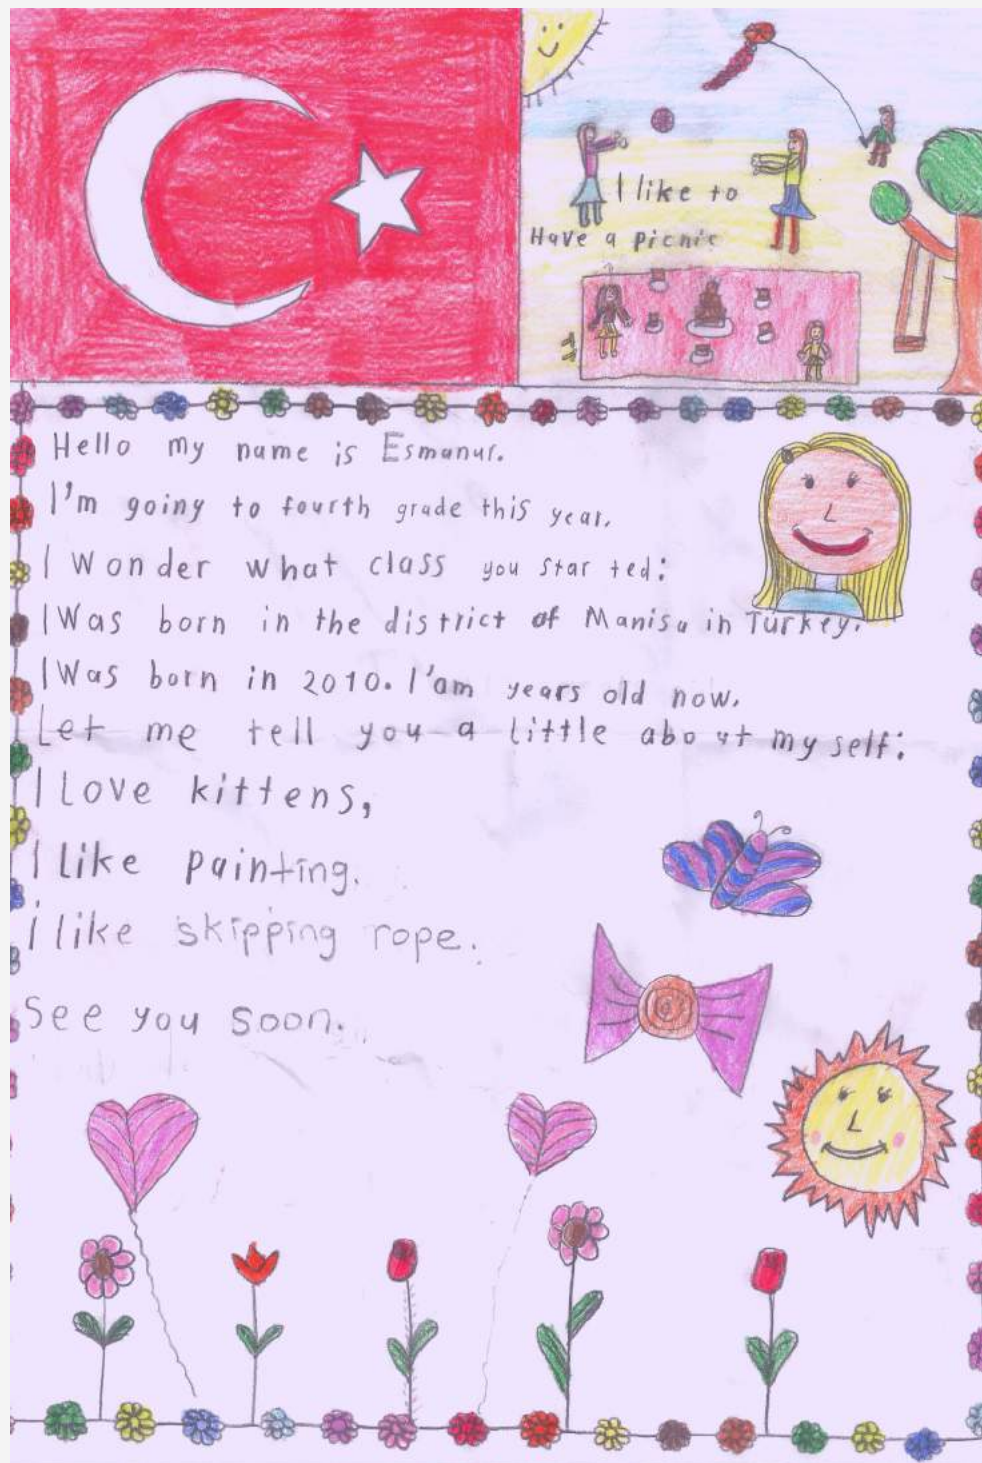 I like to
Have a picnic
Hello my name is Esmanur.
I'm going to fourth grade this year.
I Wonder what class you star ted:
I Was born in the district of Manisa in Turkey.
I Was born in 2010. I'am years old now.
Let me tell you a little about my self:
I Love kittens,
I like painting.
i like skipping rope.
See you soon.